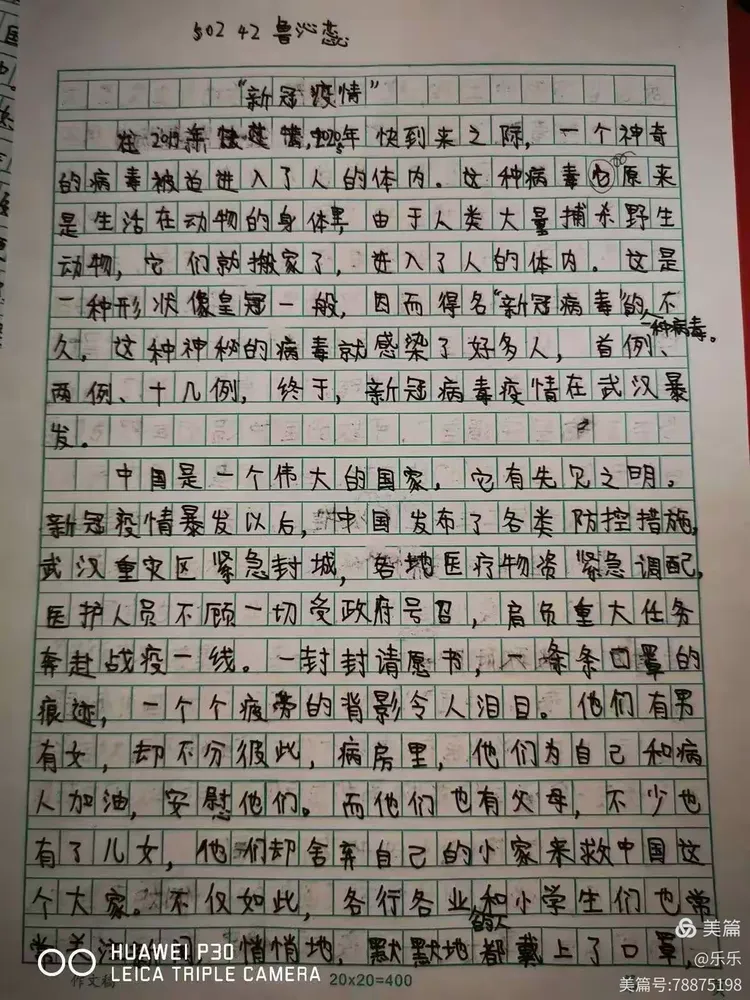 502 42 鲁沁蕊
“新冠疫情”
在2019年 2020年快到来之际，一个神奇
的病毒被迫进入了人的体内。这种病毒它原来
是生活在动物的身体里，由于人类大量捕杀野生
动物，它们就搬家了，进入了人的体内。这是
一种形状像皇冠一般，因而得名“新冠病毒”的一种病毒。不
久，这种神秘的病毒就感染了好多人，首例、
两例、十几例，终于，新冠病毒疫情在武汉暴
发。
中国是一个伟大的国家，它有先见之明。
新冠疫情暴发以后，中国发布了各类防控措施，
武汉重灾区紧急封城，各地医疗物资紧急调配，
医护人员不顾一切受政府号召，肩负重大任务
奔赴战疫一线。一封封请愿书，一条条口罩的
痕迹，一个个疲惫的背影令人泪目。他们有男
有女，却不分彼此，病房里，他们为自己和病
人加油，安慰他们。而他们也有父母，不少也
有了儿女，他们却舍弃自己的小家来救中国这
个大家。不仅如此，各行各业的人和小学生们也常
悄悄地，默默地都戴上了口罩，
HUAWEI P30
LEICA TRIPLE CAMERA
作文稿
20x20=400
美篇
@乐乐
美篇号:78875198